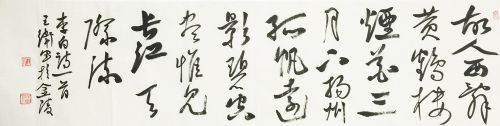 故人西辞
黄鹤楼
烟花三
月下扬州
孤帆远
影碧空
尽惟见
长江天
际流
李白诗一首
王衛军於金陵